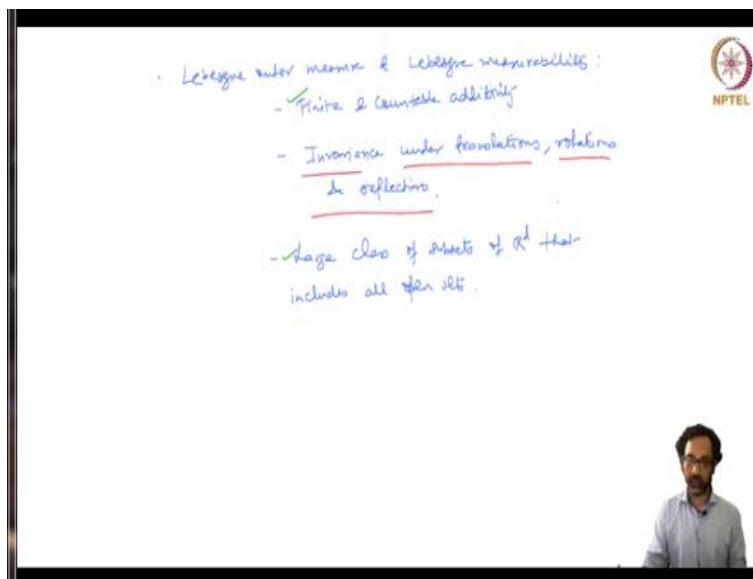 · Lebesgue outer measure & Lebesgue measurability :
- ✓ Finite & countable additivity
- Invariance under translations, rotations
& reflections.
- ✓ Large class of subsets of ℝᵈ that
includes all open sets.
NPTEL